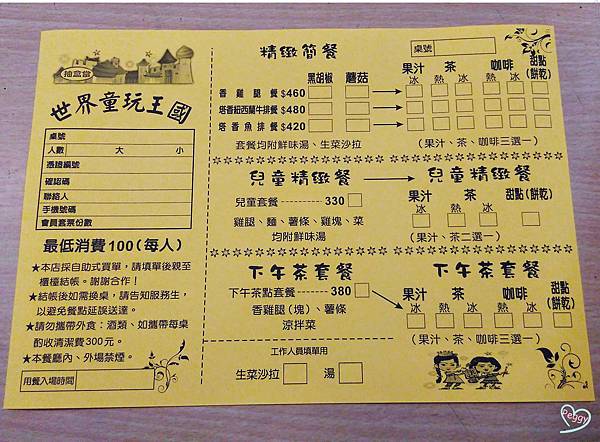 抽盒當
世界童玩王國
桌號
人數 大 小
憑證編號
確認碼
聯絡人
手機號碼
會員套票份數
最低消費100(每人)
★本店採自助式買單，請填單後親至
櫃檯結帳。謝謝合作！
★結帳後如需換桌，請告知服務生，
以避免餐點延誤送達。
★請勿攜帶外食：酒類、如攜帶每桌
酌收清潔費300元。
★本餐廳內、外場禁煙。
用餐入場時間
精緻簡餐
桌號
黑胡椒 蘑菇
果汁 茶 咖啡 甜點(餅乾)
冰 熱 冰 熱 冰
香雞腿餐$460
塔香紐西蘭牛排餐$480
塔香魚排餐$420
套餐均附鮮味湯、生菜沙拉
(果汁、茶、咖啡三選一)
兒童精緻餐
兒童精緻餐
兒童套餐 330
果汁 茶 甜點(餅乾)
冰 熱 冰
雞腿、麵、薯條、雞塊、菜
均附鮮味湯
(果汁、茶二選一)
下午茶套餐
下午茶套餐
下午茶點套餐 380
果汁 茶 咖啡 甜點(餅乾)
冰 熱 冰 熱 冰
香雞腿(塊)、薯條
涼拌菜
(果汁、茶、咖啡三選一)
工作人員填單用
生菜沙拉 湯
Peggy